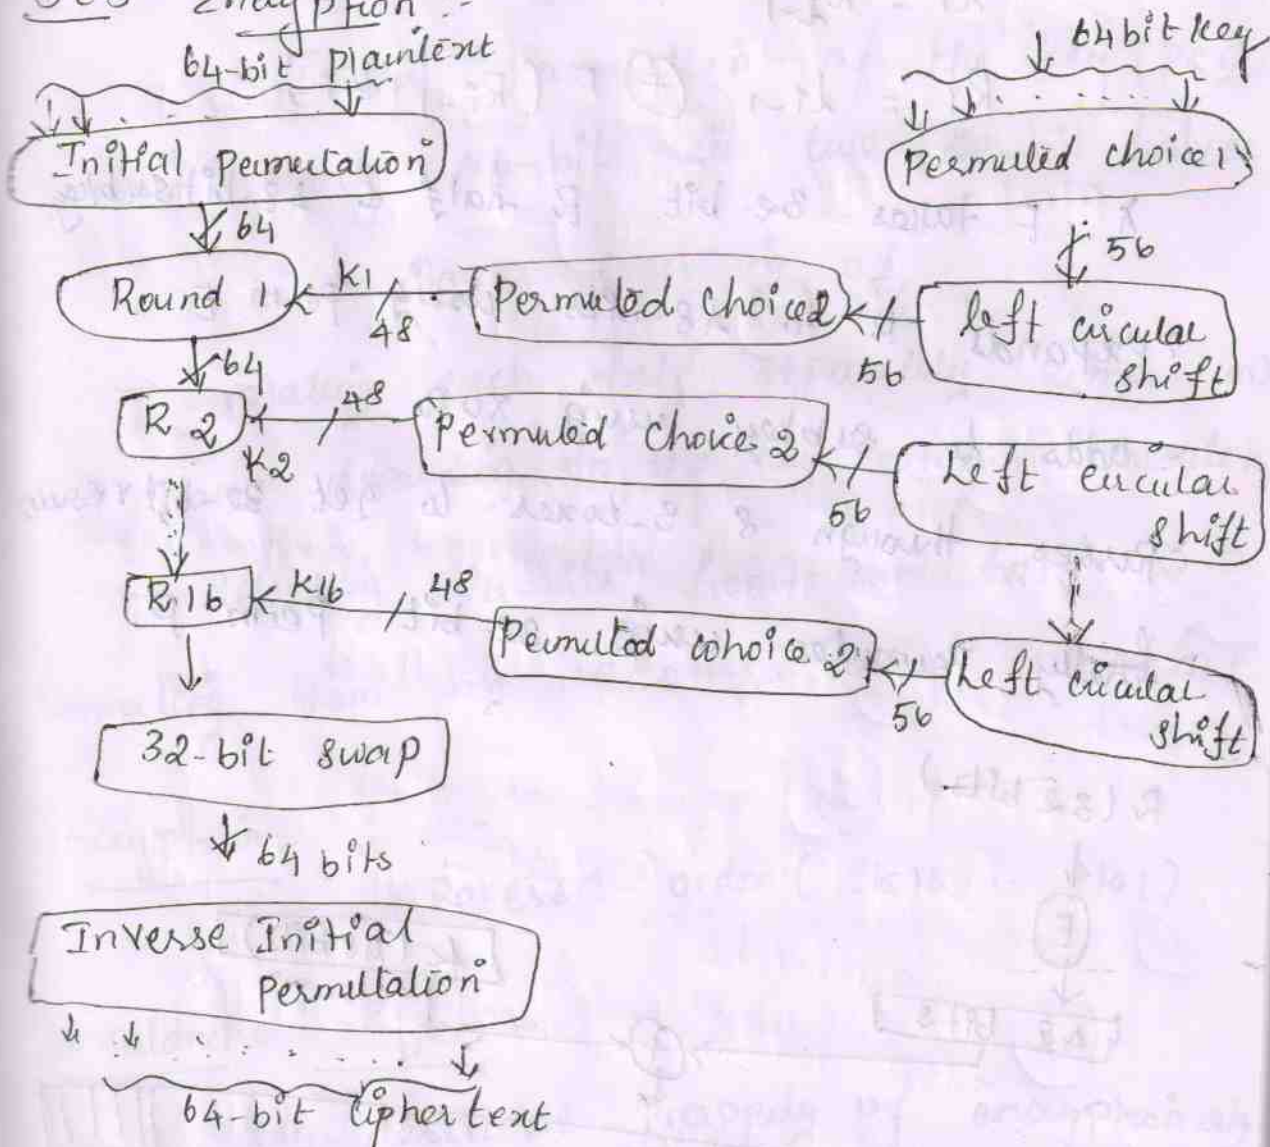 DES Encryption :-
64-bit plaintext
64 bit key
Initial permutation
permuted choice 1
64
56
Round 1
K1
48
Permuted choice 2
56
left circular
shift
64
R 2
48
K2
Permuted choice 2
56
Left circular
shift
R 16
K16
48
Permuted cohoice 2
56
Left circular
shift
32-bit swap
64 bits
Inverse Initial
permutation
64-bit Ciphertext